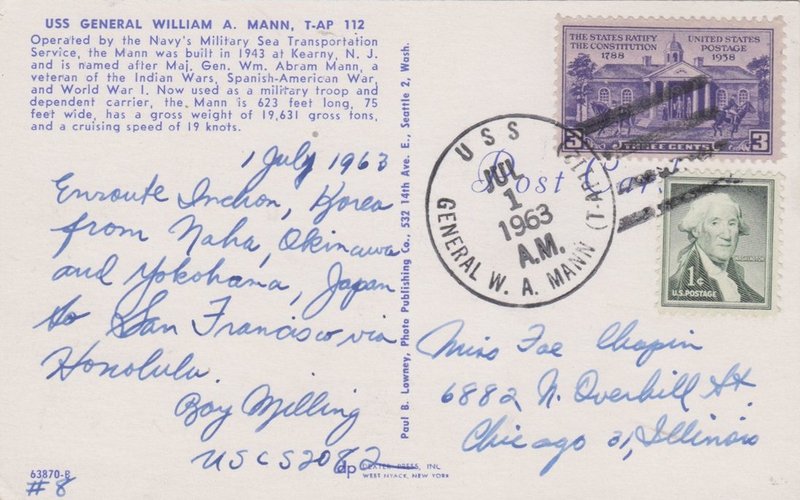 USS GENERAL WILLIAM A. MANN, T-AP 112
Operated by the Navy's Military Sea Transportation
Service, the Mann was built in 1943 at Kearny, N. J.
and is named after Maj. Gen. Wm. Abram Mann, a
veteran of the Indian Wars, Spanish-American War,
and World War I. Now used as a military troop and
dependent carrier, the Mann is 623 feet long, 75
feet wide, has a gross weight of 19,631 gross tons,
and a cruising speed of 19 knots.
1 July 1963
Enroute Inchon, Korea
from Naha, Okinawa
and Yokohama, Japan
to San Francisco via
Honolulu.
Roy Milling
USCS 2082
63870-B
#8
dp DEXTER PRESS, INC.
WEST NYACK, NEW YORK
Paul B. Lowney, Photo Publishing Co., 532 14th Ave. E., Seattle 2, Wash.
THE STATES RATIFY
THE CONSTITUTION
1788
UNITED STATES
POSTAGE
1938
3 THREE CENTS 3
Post Card
USS
GENERAL W. A. MANN (T-AP112)
JUL
1
1963
A.M.
WASHINGTON
1¢
U.S. POSTAGE
Miss Fae Chapin
6882 N. Overhill St
Chicago 31, Illinois